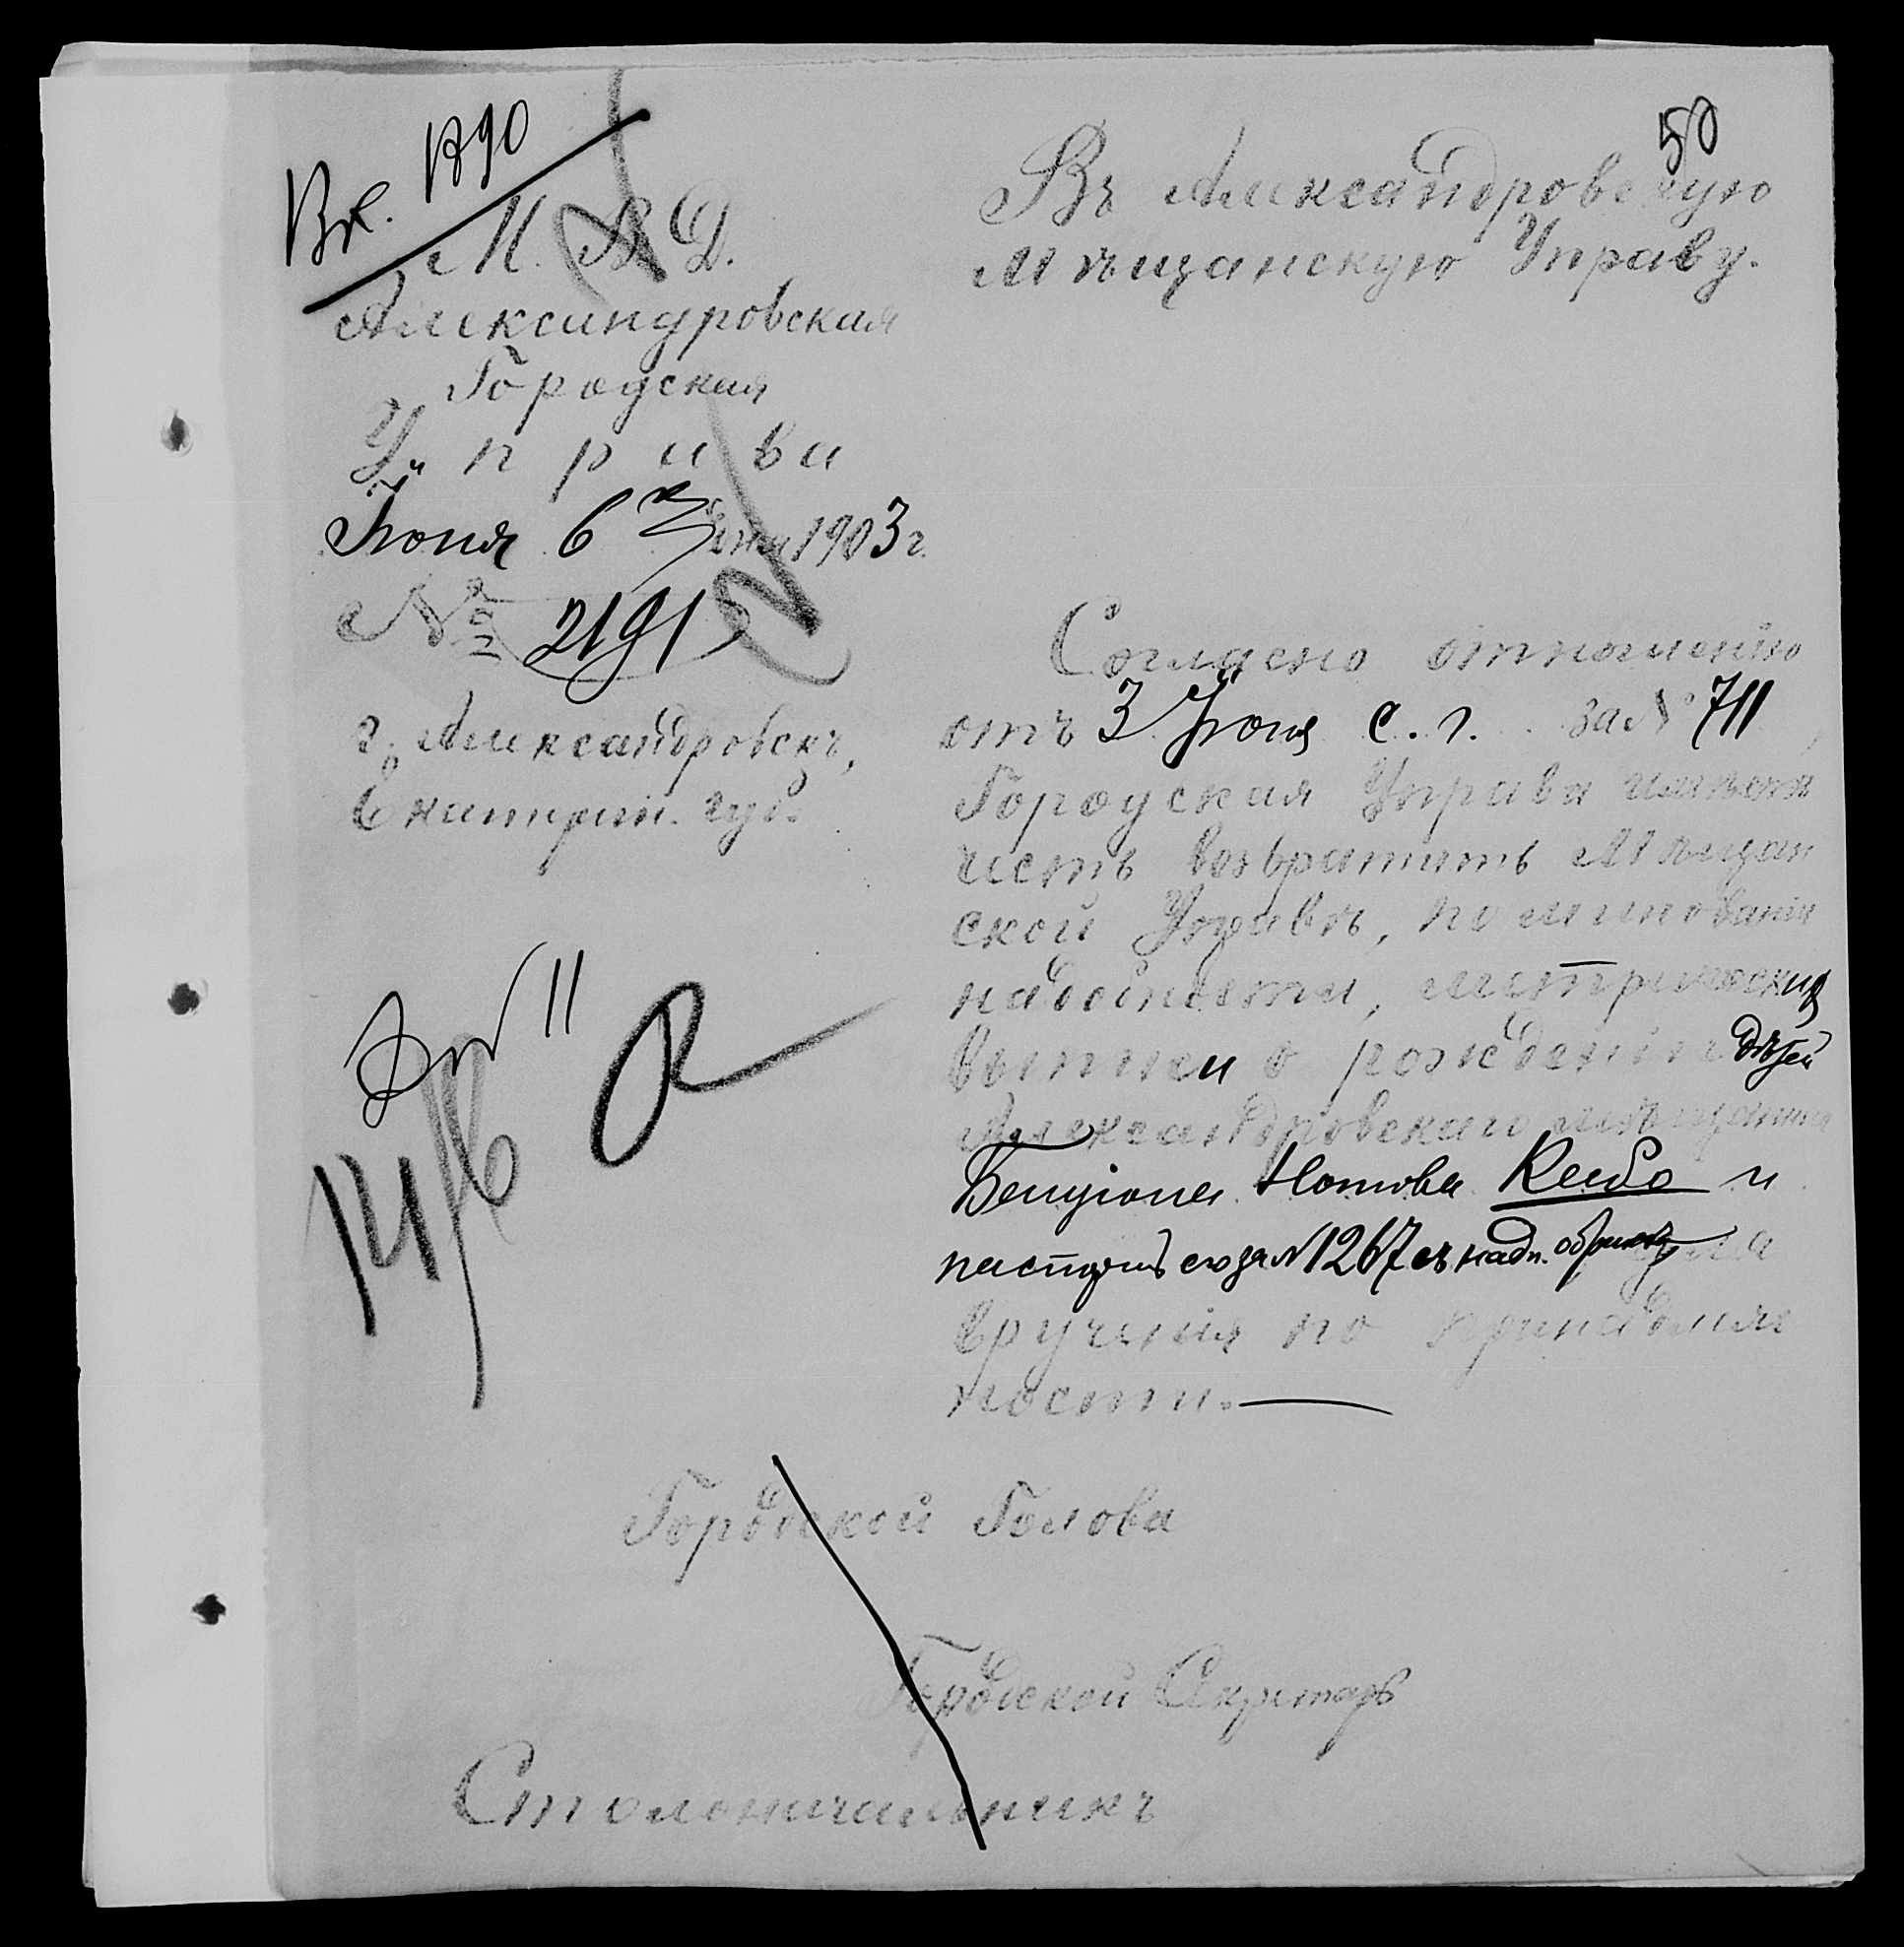 50
Вх. 1390
М. В. Д.
Александровская
Городская
Управа
Июня 6 дня 1903 г.
№ 2191
г. Александровскъ,
Екатерин. губ.
Въ Александровскую
Мѣщанскую Управу.
Согласно отношенію
отъ 3 Июня с. г. за № 711,
Городская Управа имѣетъ
честь возвратить Мѣщан
ской Управѣ, по минованіи
надобности, метрическия
выписи о рожденіи дѣтей
Александровскаго мѣщанина
Бенціона Нотова Кейбо и
паспортъ его за № 1267 съ надп. для
врученія по принадлеж
ности.
11
14/6
Городской Голова
Городской Секретарь
Столоначальникъ